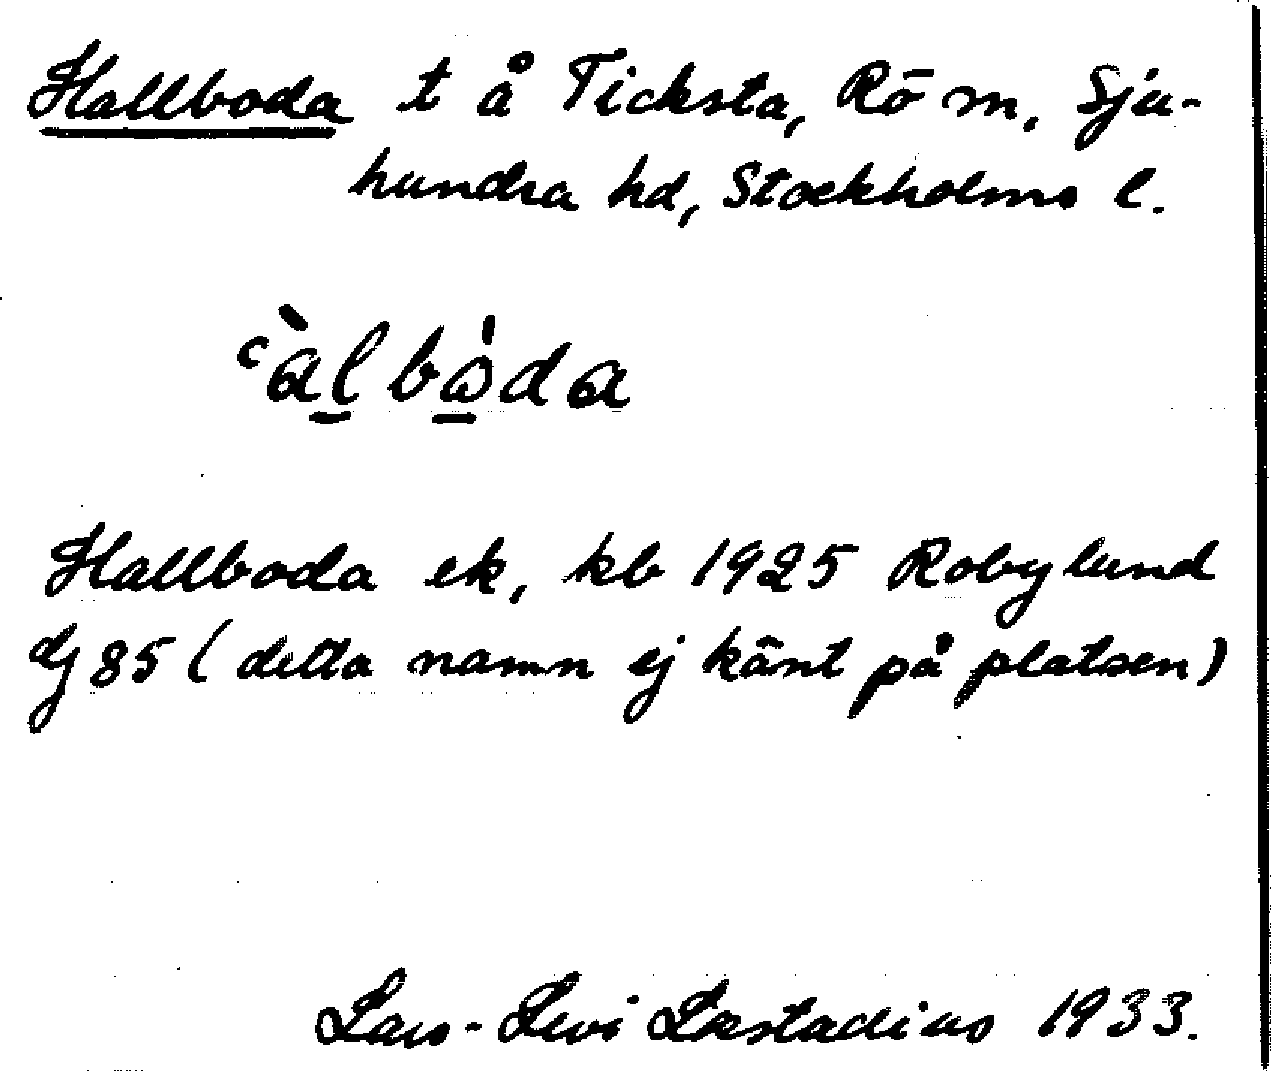 Hallboda t å Ticksta, Rö sn, Sju-
hundra hd, Stockholms l.
ʿàl bòda
Hallboda ek, kb 1925 Robylund
dj 85 (detta namn ej känt på platsen)
Lars-Levi Læstadius 1933.